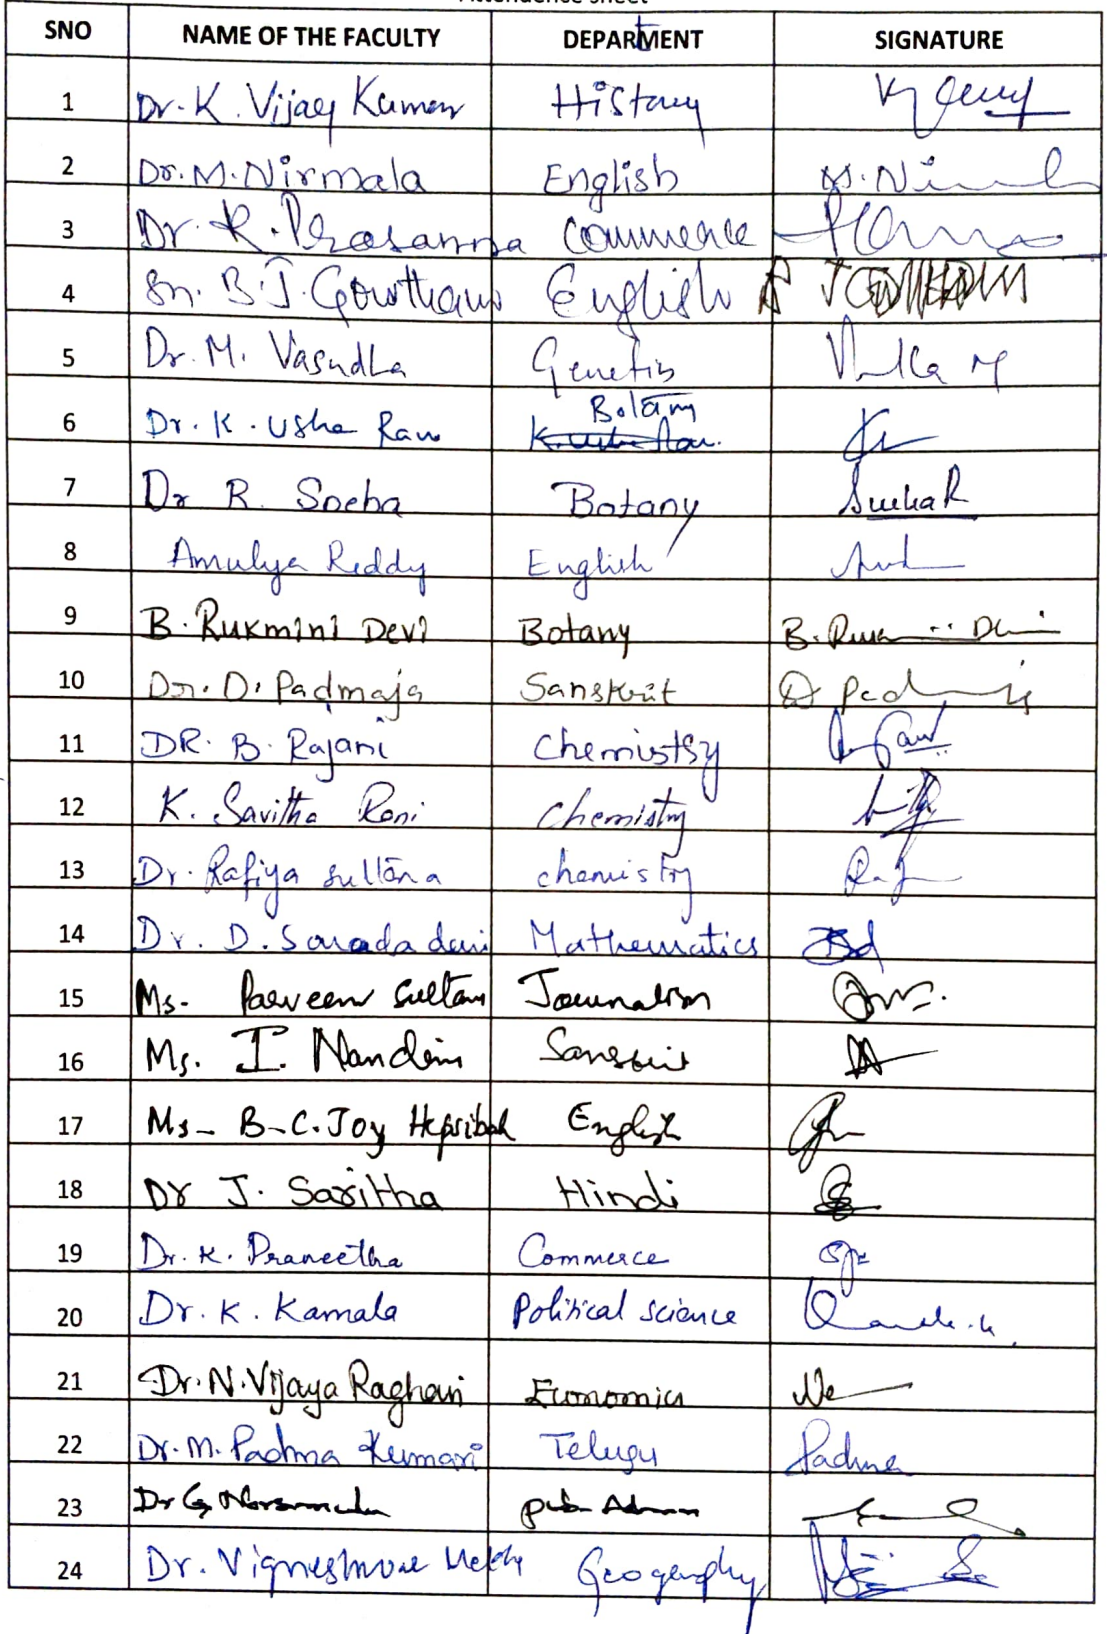 Attendence sheet
SNO NAME OF THE FACULTY DEPARTMENT SIGNATURE
1 Dr. K. Vijay Kumar History
2 Dr. M. Nirmala English M. Ni
3 Dr. R. Prasanna Commerce
4 Sri. B.J. Gowtham English
5 Dr. M. Vasudha Genetics
Botany
6 Dr. K. Usha Rani
7 Dr R. Sneha Botany Sneha R
8 Amulya Reddy English
9 B. Rukmini Devi Botany B. Devi
10 Dr. D. Padmaja Sanskrit D Pad
11 DR. B. Rajani Chemistry
12 K. Savitha Rani Chemistry
13 Dr. Rafiya Sultana chemistry
14 Dr. D. Sarada devi Mathematics
15 Ms. Parveen Sultana Journalism
16 Ms. I. Nandini Sanskrit
17 Ms- B-C. Joy Hepsibah English
18 Dr J. Saritha Hindi
19 Dr. K. Praneetha Commerce
20 Dr. K. Kamala Political science
21 Dr. N. Vijaya Raghavi Economics
22 Dr. M. Padma Kumari Telugu Padma
23 Dr G pub Admn
24 Dr. Vigneshwar Reddy Geography